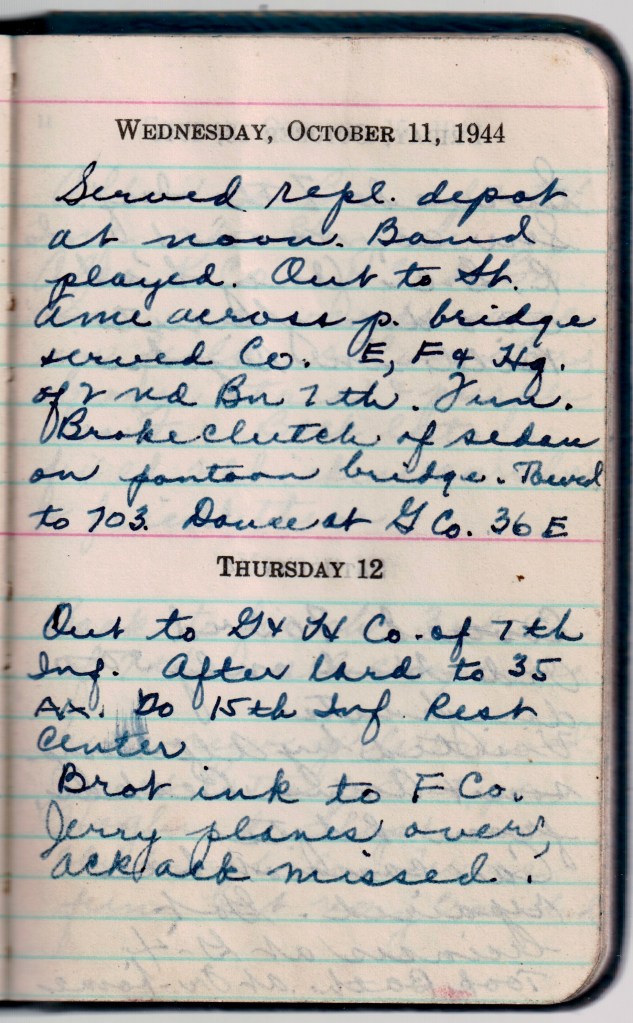 WEDNESDAY, OCTOBER 11, 1944
Served repl. depot
at noon. Band
played. Out to St.
Ame across p. bridge
served Co. E, F & Hq.
of 2nd Bn 7th.
Broke clutch of sedan
on pontoon bridge. Towed
to 703. Dance at G Co. 36 E
THURSDAY 12
Out to G & H Co. of 7th
Inf. After to 35
AA. Do 15th Inf Rest
Center
Brot ink to F Co.
Jerry planes over,
ack ack missed.